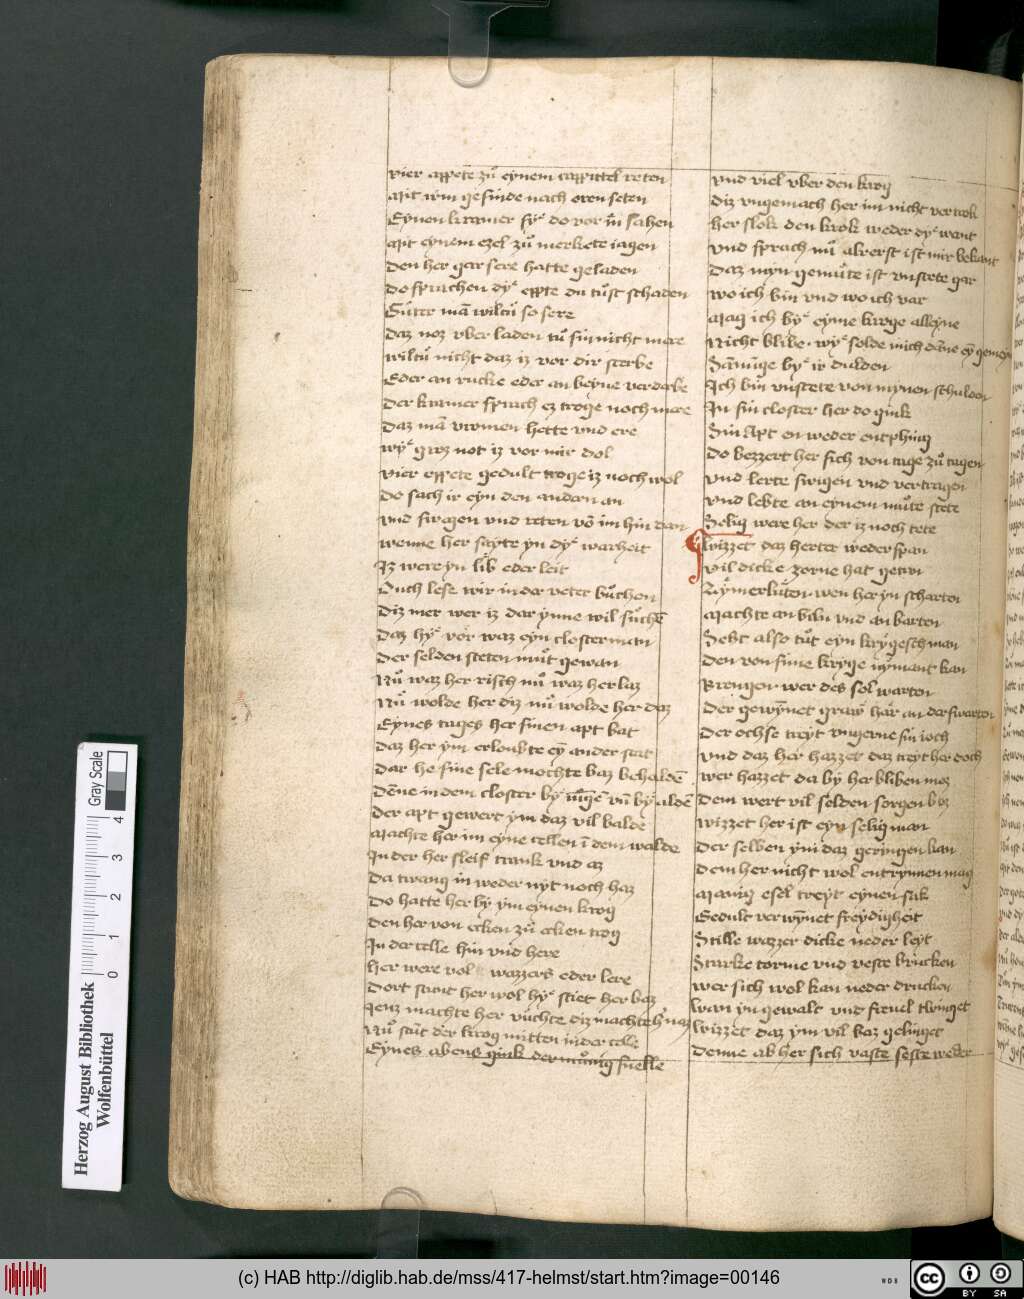 vier eppete zu eynem cappittel reten
Mit irm gesinde nach eren seten
Eynen kramer sy do vor in sahen
Mit eynem ezel zu merkete iagen
Den her gar sere hatte geladen
Do sprachen dy eppte du tust schaden
Guter mā wiltu so sere
daz noz vber laden tu sin nicht mere
wiltu nicht daz iz vor dir sterbe
Eder an rucke eder an beyne verderbe
Der kramer sprach ez troge noch mere
Daz mā vromen hette vnd ere
wy groz not iz vor mir dol
vier eppete gedult troge iz noch wol
Do sach ir eyn den andern an
vnd swigen vnd reten vō im hin dan
wenne her sayte yn dy warheit
Iz were yn lib eder leit
Ouch lese wir in der veter buchen
Diz mer wer iz dar ynne wil suchē
Daz hy vor waz eyn closterman
Der selden steten mut gewan
Nu waz her risch nu waz her laz
Nu wolde her diz nu wolde her daz
Eynes tages her sinen apt bat
daz her ym erloubte ey ander stat
dar he sine sele mochte baz behaldē
Dēne in dem closter by iūgē vn by aldē
der apt gewert ym daz vil balde
Machte her im eyne cellen ī dem walde
In der her sleif trank vnd az
Da twang in weder nyt noch haz
Do hatte her by ym eynen krog
Den her von ecken zu ecken trog
In der celle hin vnd here
her were vol wazzers eder lere
Dort stunt her wol hy stiet her baz
Nu stut der krog mitten in der celle
Eynes abens gink der munig snelle
vnd viel vber den krog
Diz vngemach her im nicht vertrok
her slok den krok weder dy want
vnd sprach nu alrerst ist mir bekant
Daz myn gemute ist vnstete gar
wo ich bin vnd wo ich var
Mag ich by eyme kroge alleyne
Nicht blibe . wy solde mich dāne ey gemeyne
Samūge by ir dulden
Ich bin vnstete von mynen schulden
In sin closter her do gink
Sin Apt en weder entphing
Do bezzert her sich von tage zu tagen
vnd lerte swigen vnd vertragen
vnd lebte an eynem mute stete
Selig were her der iz noch tete
wizzet daz herter weder span
vil dicke zorne hat getan
Zymerluten . wen her yn scharten
Machte an biln vnd an barten
Seht also tut eyn krygeschman
Den von sime kryge nymant kan
Brengen . wer des sol warten
Der gewynet graw har an der swarten
Der ochse treyt vngerne sin ioch
vnd daz her hazzet daz treyt her doch
wer hazzet da by her bliben moz
Dem wert vil selden sorgen boz
wizzet her ist eyn selig man
Der selben ym daz geringen kan
Dem her nicht wol entrynnen mag
Manig esel treyt eynen sak
Gedult verwynet freydigheit
Stille wazzer dicke neder leyt
Starke torme vnd veste brucken
wer sich wol kan neder drucken
wan yn gewalt vnd freuel twinget
wizzet daz ym vil baz gelinget
Denne ab her sich vaste seste weder
Herzog August Bibliothek
Wolfenbüttel
Gray Scale
0 1 2 3 4
(c) HAB http://diglib.hab.de/mss/417-helmst/start.htm?image=00146
WDB
cc BY SA